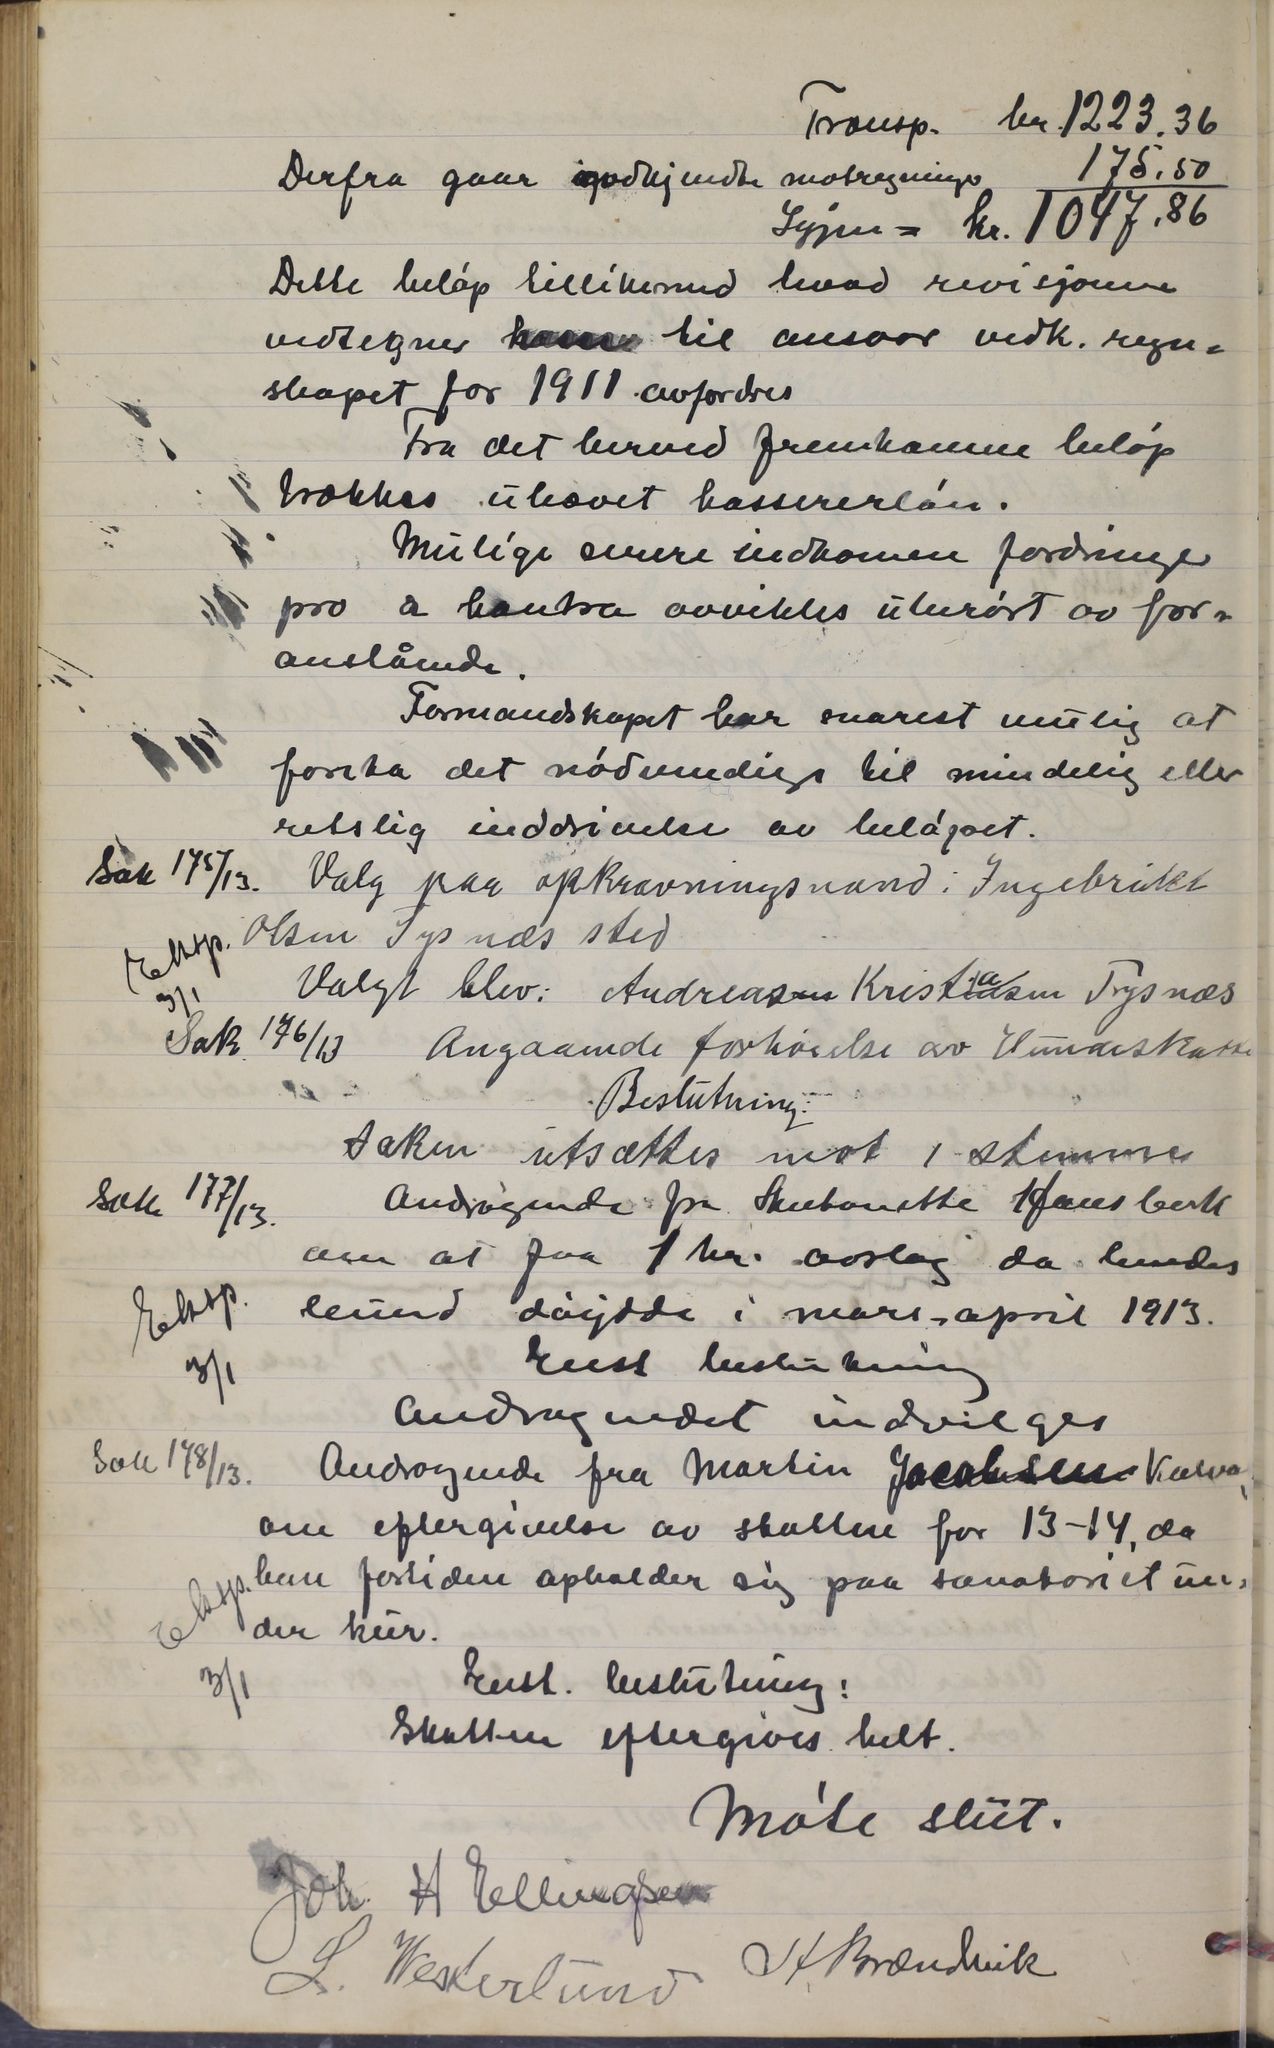 Transp. kr. 1223,36
Derfra gaar godkjendte motregninger 175,50
Igjen = kr. 1047,86
Dette beløp tillikemed hvad revisjonen
vedtegner til ansvar vedk. regn-
skapet for 1911 avfordres
Fra det herved fremkomne beløp
trækkes uhævet kassererløn.
Mulige senere indkomne fordringer
pro & kontra avvikles uberørt av for-
anstående.
Formandskapet har snarest mulig at
foreta det nødvendige til mindelig eller
retslig inddrivelse av beløpet.
Sak 175/13. Valg paa opkrævningsmand: Ingebrikt
Olsen Tysnæs sted
Eksp. 3/1
Valgt blev: Andreas Kristiansen Tysnæs
Sak 176/13 Angaaende forhøielse av Hundeskatte
Beslutning:
Saken utsættes mot 1 stemme
Sak 177/13. Andragende fra Hansberk
om at faa 1 kr. avslag da hendes
hund døydde i mars-april 1913.
Eksp. 3/1
Enst beslutning
Andragendet indvilges
Sak 178/13. Andragende fra Martin Jacobsen Kalvø,
om eftergivelse av skatten for 13-14, da
han fortiden opholder sig paa sanatoriet un-
der kur.
Eksp. 3/1
Enst. beslutning:
Skatten eftergives helt.
Møte slut.
Joh. H Ellingsen
L. Westerlund H Brændvik